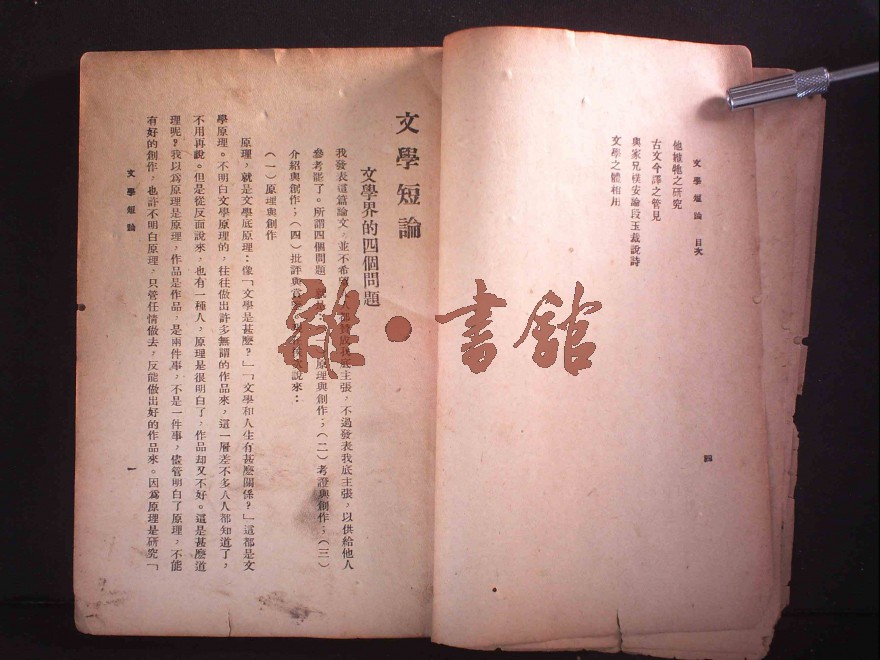 文學短論 目次
他維牠之研究
古文今譯之管見
與家兄樸安論段玉裁說詩
文學之體相用
四
文學短論
文學界的四個問題
我發表這篇論文，並不希望 贊成我底主張，不過發表我底主張，以供給他人
參考罷了。所謂四個問題 原理與創作；（二）考證與創作；（三）
介紹與創作；（四）批評與賞 說來：
（一）原理與創作
原理，就是文學底原理：像「文學是甚麼？」「文學和人生有甚麼關係？」這都是文
學原理。不明白文學原理的，往往做出許多無謂的作品來，這一層差不多人人都知道了，
不用再說。但是從反面說來，也有一種人，原理是很明白了，作品却又不好。這是甚麼道
理呢？我以爲原理是原理，作品是作品，是兩件事，不是一件事，儘管明白了原理，不能
有好的創作，也許不明白原理，只管任情做去，反能做出好的作品來。因爲原理是研究「
文學短論
一
雜·書館